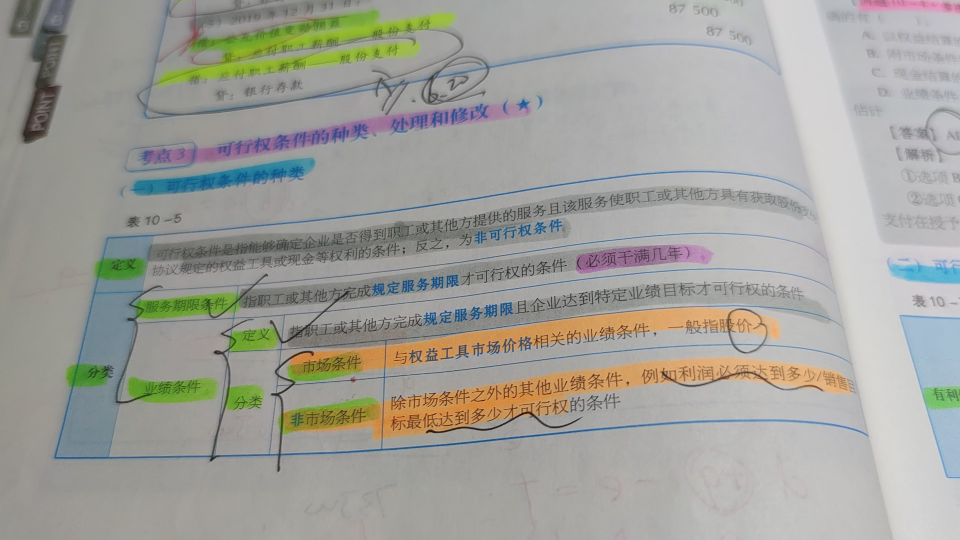 87 500
股份支付
借：应付职工薪酬——股份支付
87 500
贷：银行存款
POINT
考点3 可行权条件的种类、处理和修改（★）
（一）可行权条件的种类
表 10-5
定义
可行权条件是指能够确定企业是否得到职工或其他方提供的服务且该服务使职工或其他方具有获取股份支付
协议规定的权益工具或现金等权利的条件；反之，为非可行权条件
分类
服务期限条件
指职工或其他方完成规定服务期限才可行权的条件（必须干满几年）
业绩条件
定义
指职工或其他方完成规定服务期限且企业达到特定业绩目标才可行权的条件
分类
市场条件
与权益工具市场价格相关的业绩条件，一般指股价
非市场条件
除市场条件之外的其他业绩条件，例如利润必须达到多少/销售目
标最低达到多少才可行权的条件
A. 以权益结算
B. 附市场条件
C. 现金结算
D. 业绩条件
估计
【答案】
【解析】
①选项
②选项
支付在授予
（二）可行
表 10-
有利